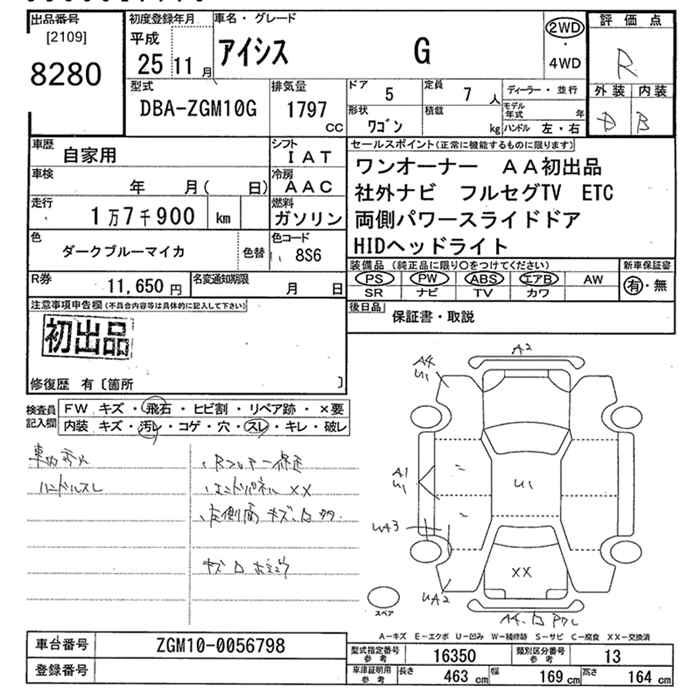 出品番号 初度登録年月 車名・グレード 評価点
[2109]
8280
平成
25 11月
アイシス G
2WD
・
4WD
R
型式 排気量 ドア 定員 ディーラー・並行 外装 内装
DBA-ZGM10G 1797 cc
5 7 人
形状 積載 モデル年式 年
ワゴン kg ハンドル 左・右
D B
車歴 自家用 シフト IAT
車検 年 月( 日) 冷房 AAC
走行 1万7千900 km 燃料 ガソリン
色 ダークブルーマイカ 色替 色コード 8S6
R券 11,650円 名変通知期限 月 日
セールスポイント(正常に機能するものに限ります)
ワンオーナー AA初出品
社外ナビ フルセグTV ETC
両側パワースライドドア
HIDヘッドライト
装備品(純正品に限り○をつけてください) 新車保証書
PS PW ABS エアB AW 有・無
SR ナビ TV カワ
後日品 保証書・取説
注意事項申告欄(不具合内容等は具体的に記入して下さい)
初出品
修復歴 有〔箇所 〕
検査員記入欄
FW キズ・飛石・ヒビ割・リペア跡・×要
内装 キズ・汚レ・コゲ・穴・スレ・キレ・破レ
ハンドルスレ
・エンドパネル XX
A2
A4
U1
A1
U1
U1
UA3
XX
UA2
スペア
A-キズ E-エクボ U-凹み W-補修跡 S-サビ C-腐食 XX-交換済
車台番号 ZGM10-0056798
登録番号
型式指定番号 参考 16350 類別区分番号 参考 13
車庫証明用 参考 長さ 463 cm 幅 169 cm 高さ 164 cm